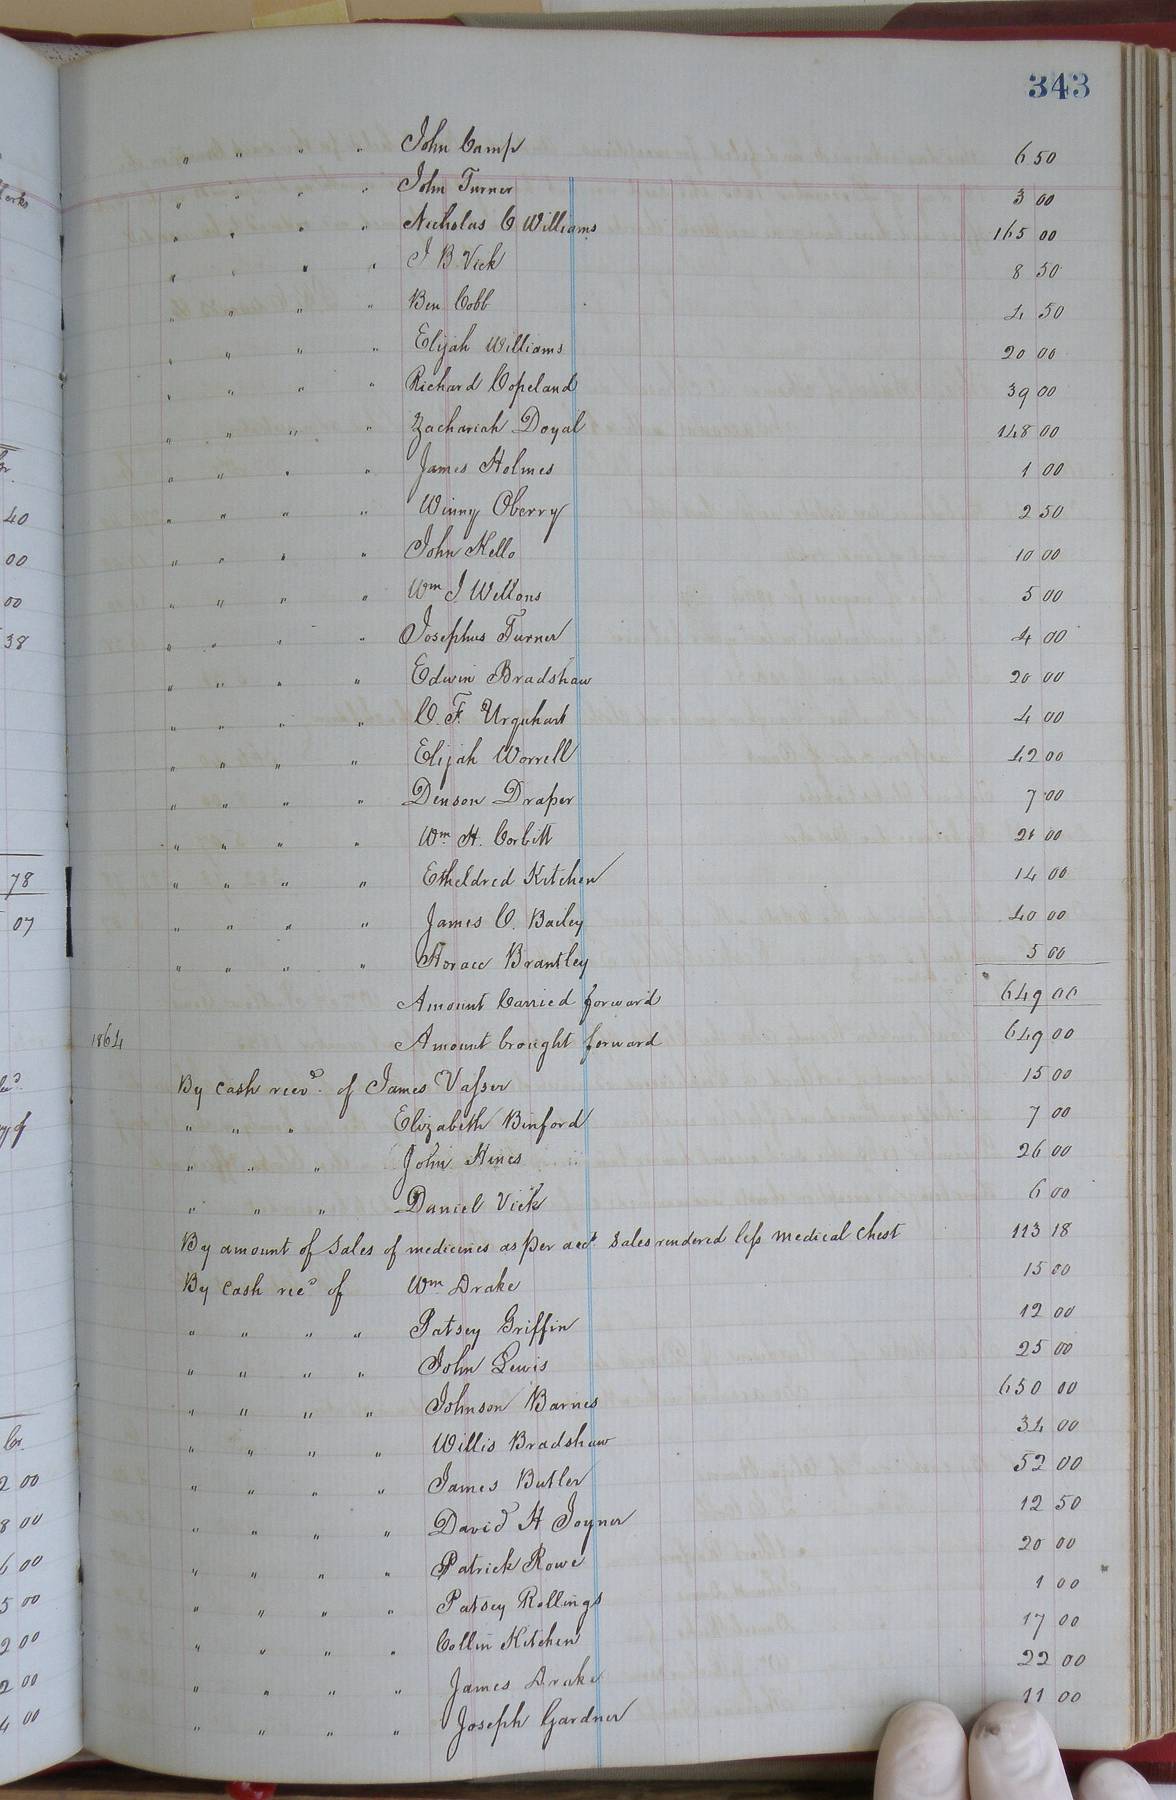 343
" " " " John Camp 6 50
" " " " John Turner 3 00
" " " " Nicholas C Williams 165 00
" " " " J B Vick 8 50
" " " " Ben Cobb 4 50
" " " " Elijah Williams 20 00
" " " " Richard Copeland 39 00
" " " " Zachariah Doyal 148 00
" " " " James Holmes 1 00
" " " " Winny Oberry 2 50
" " " " John Kello 10 00
" " " " Wm J Wellons 5 00
" " " " Josephus Turner 4 00
" " " " Edwin Bradshaw 20 00
" " " " C. F. Urquhart 4 00
" " " " Elijah Worrell 42 00
" " " " Denson Draper 7 00
" " " " Wm H. Corbitt 00
" " " " Etheldred Kitchen 14 00
" " " " James C. Bailey 40 00
" " " " Horace Brantley 5 00
Amount Carried forward 649 00
1864 Amount brought forward 649 00
By cash recvd. of James Vasser 15 00
" " " Elizabeth Binford 7 00
" " " John Hines 26 00
" " " Daniel Vick 6 00
By amount of sales of medicines as per acct sales rendered less medical chest 113 18
By cash recd of Wm Drake 15 00
" " " " Patsey Griffin 12 00
" " " " John Lewis 25 00
" " " " Johnson Barnes 650 00
" " " " Willis Bradshaw 34 00
" " " " James Butler 52 00
" " " " David H Joyner 12 50
" " " " Patrick Rowe 20 00
" " " " Patsey Rollings 1 00
" " " " Collin Kitchen 17 00
" " " " James Drake 22 00
" " " " Joseph Gardner 11 00
40
00
00
38
78
07
Cr
2 00
8 00
6 00
5 00
2 00
2 00
4 00